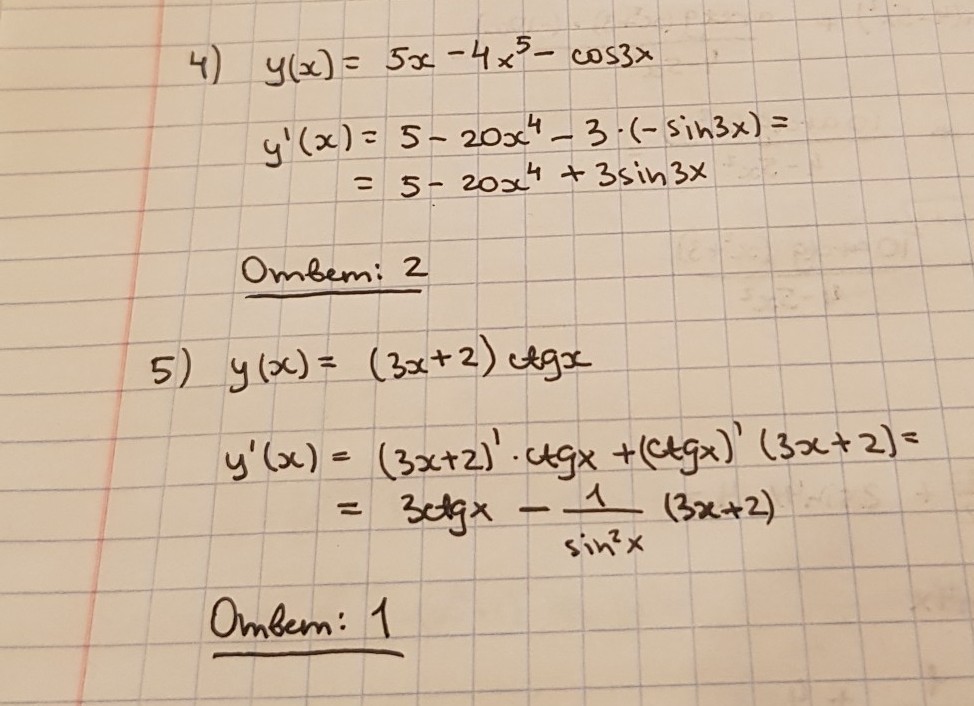 4) y(x) = 5x - 4x⁵ - cos3x
y'(x) = 5 - 20x⁴ - 3·(-sin3x) =
= 5 - 20x⁴ + 3sin3x
Ответ: 2
5) y(x) = (3x+2) ctgx
y'(x) = (3x+2)'·ctgx + (ctgx)' (3x+2) =
= 3ctgx - 1/sin²x (3x+2)
Ответ: 1